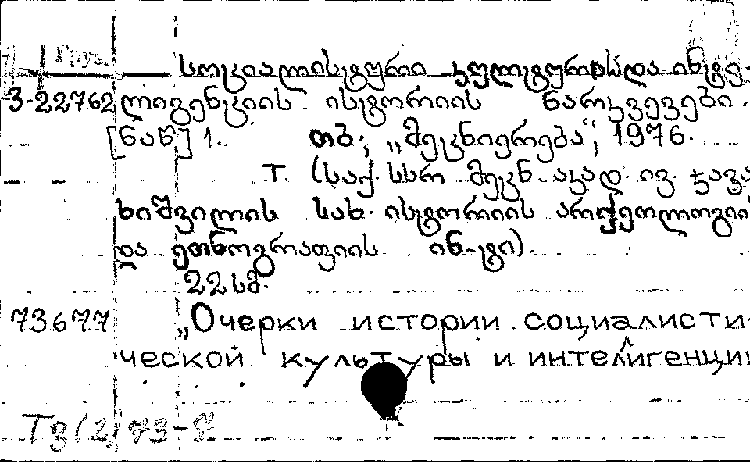 სოციალისტური კულტურისა და ინტე-
3-22762 ლიგენციის ისტორიის ნარკვევები.
[ნაწ] 1. თბ., „მეცნიერება“, 1976.
Т. (საქ. სსრ მეცნ. აკად. ივ. ჯავა
ხიშვილის სახ. ისტორიის არქეოლოგიის
და ეთნოგრაფიის ინ-ტი).
22 სმ.
73677 „Очерки истории социалисти-
ческой культуры и интеллигенции